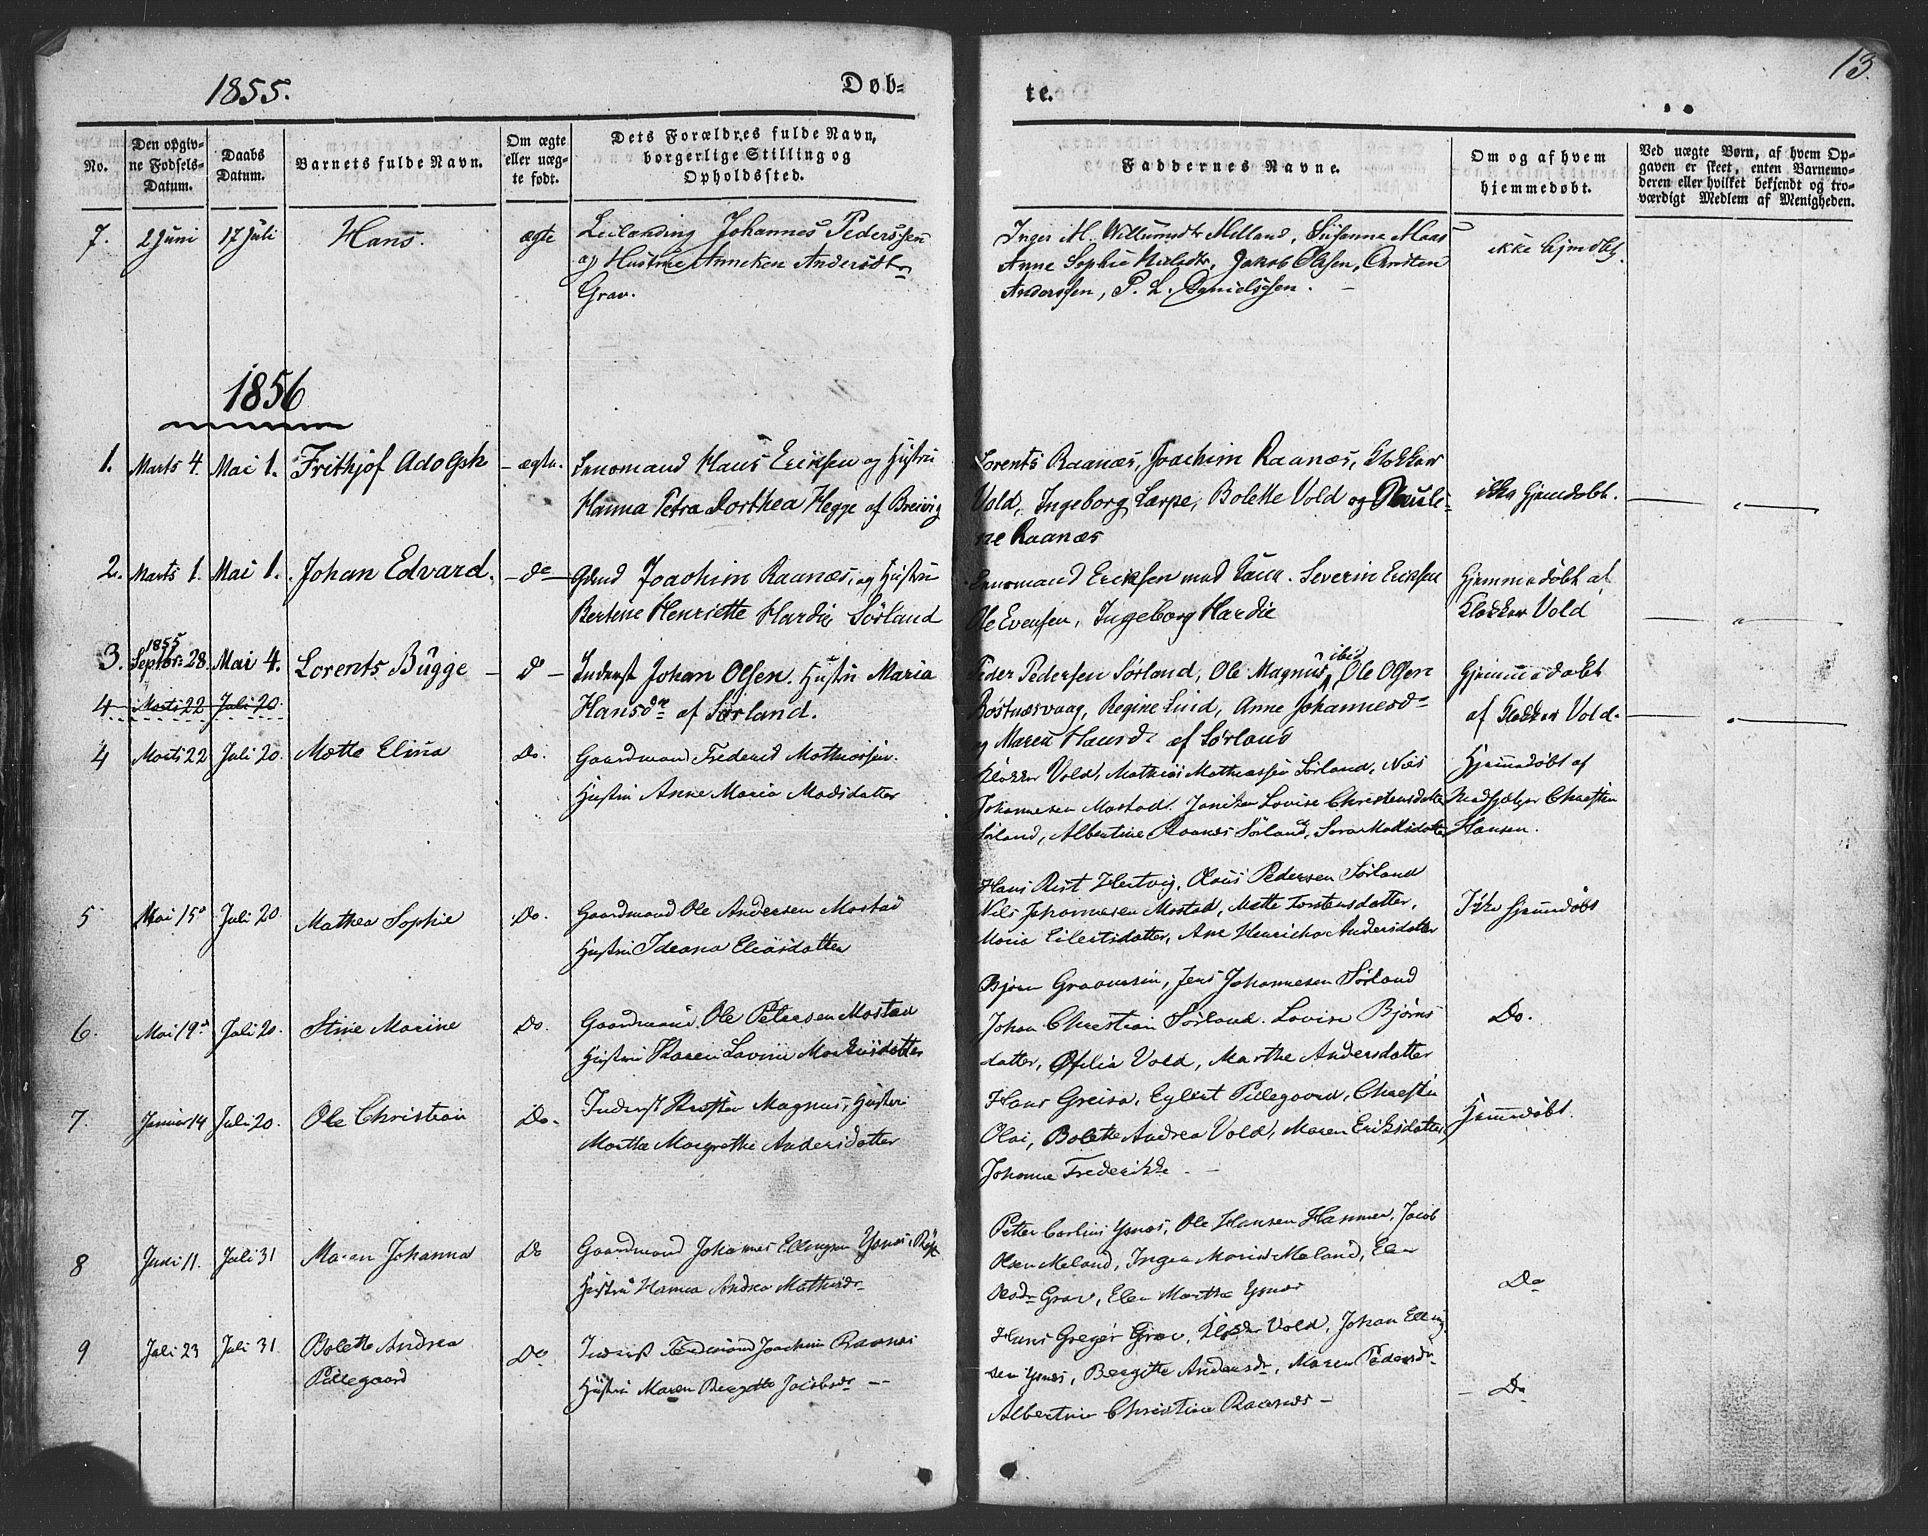 1855.
Døb=
te.
13.
No.
Den opgiv-
ne Fødsels-
Datum.
Daabs
Datum.
Barnets fulde Navn.
Om ægte
eller uæg-
te født.
Dets Forældres fulde Navn,
borgerlige Stilling og
Opholdssted.
Faddernes Navne.
Om og af hvem
hjemmedøbt.
Ved uægte Børn, af hvem Op-
gaven er skeet, enten Barnemo-
deren eller hvilket bekjendt og tro-
værdigt Medlem af Menigheden.
7. 2 Juni 17 Juli Hans. ægte
Leilænding Johannes Pederssen
og Hustrue Anneken Andersdtr
Grav.
Inger M. Willumsdtr Melland, Susanne Maas
Anne Sophie Nielsdtr, Jakob Olssen, Christen
Anderssen, P. L. Danielssen.
ikke hjmdbt.
1856
1. Marts 4. Mai 1. Frithjof Adolph - ægte.
Enromand Hans Eriksen og Hustru
Hanna Petra Dorthea Hegge af Breivig
Lorents Raanæs, Joachim Raanæs, Klokker
Vold, Ingeborg Larpe, Bolette Vold og Pauli-
ne Raanæs
ikke hjemdøbt.
2. Marts 1. Mai 1. Johan Edvard. - do -
Gbrnd Joachim Raanæs, og Hustru
Bertine Henriette Hardie Sørland
Enromand Eriksen med Severin Eriksen
Ole Evensen, Ingeborg Hardie
Hjemmedøbt af
Klokker Vold
3. 1855
Septbr. 28. Mai 4. Lorents Bugge - do -
Inderst Johan Olsen. Hustru Maria
Hansdr af Sørland.
Peder Pedersen Sørland, Ole Magnus ibid, Ole Olsen
Røstnæsvaag, Regine Lind, Anne Johannesdr
og Maren Hansdr af Sørland
Hjemmedøbt
af Klokker Vold.
4 Marts 22 Juli 20.
4 Marts 22 Juli 20. Mette Elina Do.
Gaardmand Frederik Mathiassen.
Hustru Anne Maria Madsdatter
Klokker Vold, Mathias Mathiassen Sørland, Nils
Johannesen Mostad. Janikka Lovise Christensdatter
Sørland, Albertine Raanæs Sørland, Sara Madsdatter
Hjemmedøbt af
Medhjelper Christen
Hansen.
5 Mai 15de Juli 20. Mathea Sophie Do.
Gaardmand Ole Andersen Mostad
Hustru Ideana Eliasdatter
Hans Rist Hertvig, Olaus Pedersen Sørland
Nils Johannesen Mostad, Mette Torstensdatter,
Maria Eilertsdatter, Ane Henricha Andersdatter
Ikke hjemmdøbt
6. Mai 19de Juli 20. Stine Marine Do.
Gaardmand Ole Petersen Mostad
Hustru Karen Lovine Markusdatter
Bjørn Graamesin, Jens Johannesen Sørland
Johan Christian Sørland. Lovise Bjørns
datter, Ofilia Vold, Marthe Andersdatter
Do.
7. Januar 14 Juli 20. Ole Christian Do.
Inderst Krister Magnus, Hustru
Martha Margrethe Andersdatter
Hans Greisa, Eylert Pillegaard, Christen
Olai, Bolette Andrea Vold, Maren Eriksdatter,
Johanne Frederikke
Hjemmedøbt.
8 Juni 11. Juli 31 Maren Johanna Do
Gaardmand Johannes Ellingsen Ysnæs, Røst
Hustru Hanna Andrea Mathisdr
Petter Carlius Ysnæs, Ole Hansen Hammer, Jacob
Olsen Meland, Inger Maria Meland, Elen
Olsdr Grav, Elen Martha Ysnæs
Do
9 Juli 23 Juli 31. Bolette Andrea
Pillegaard Do
Inderst Ferdinand Joachim Raanæs
Hustru Maren Bergitte Jacobsdr
Hans Greger Grav, Klokker Vold, Johan Elling-
sen Ysnæs, Bergitte Andersdr, Maren Pedersdr
Albertine Christine Raanæs
- Do